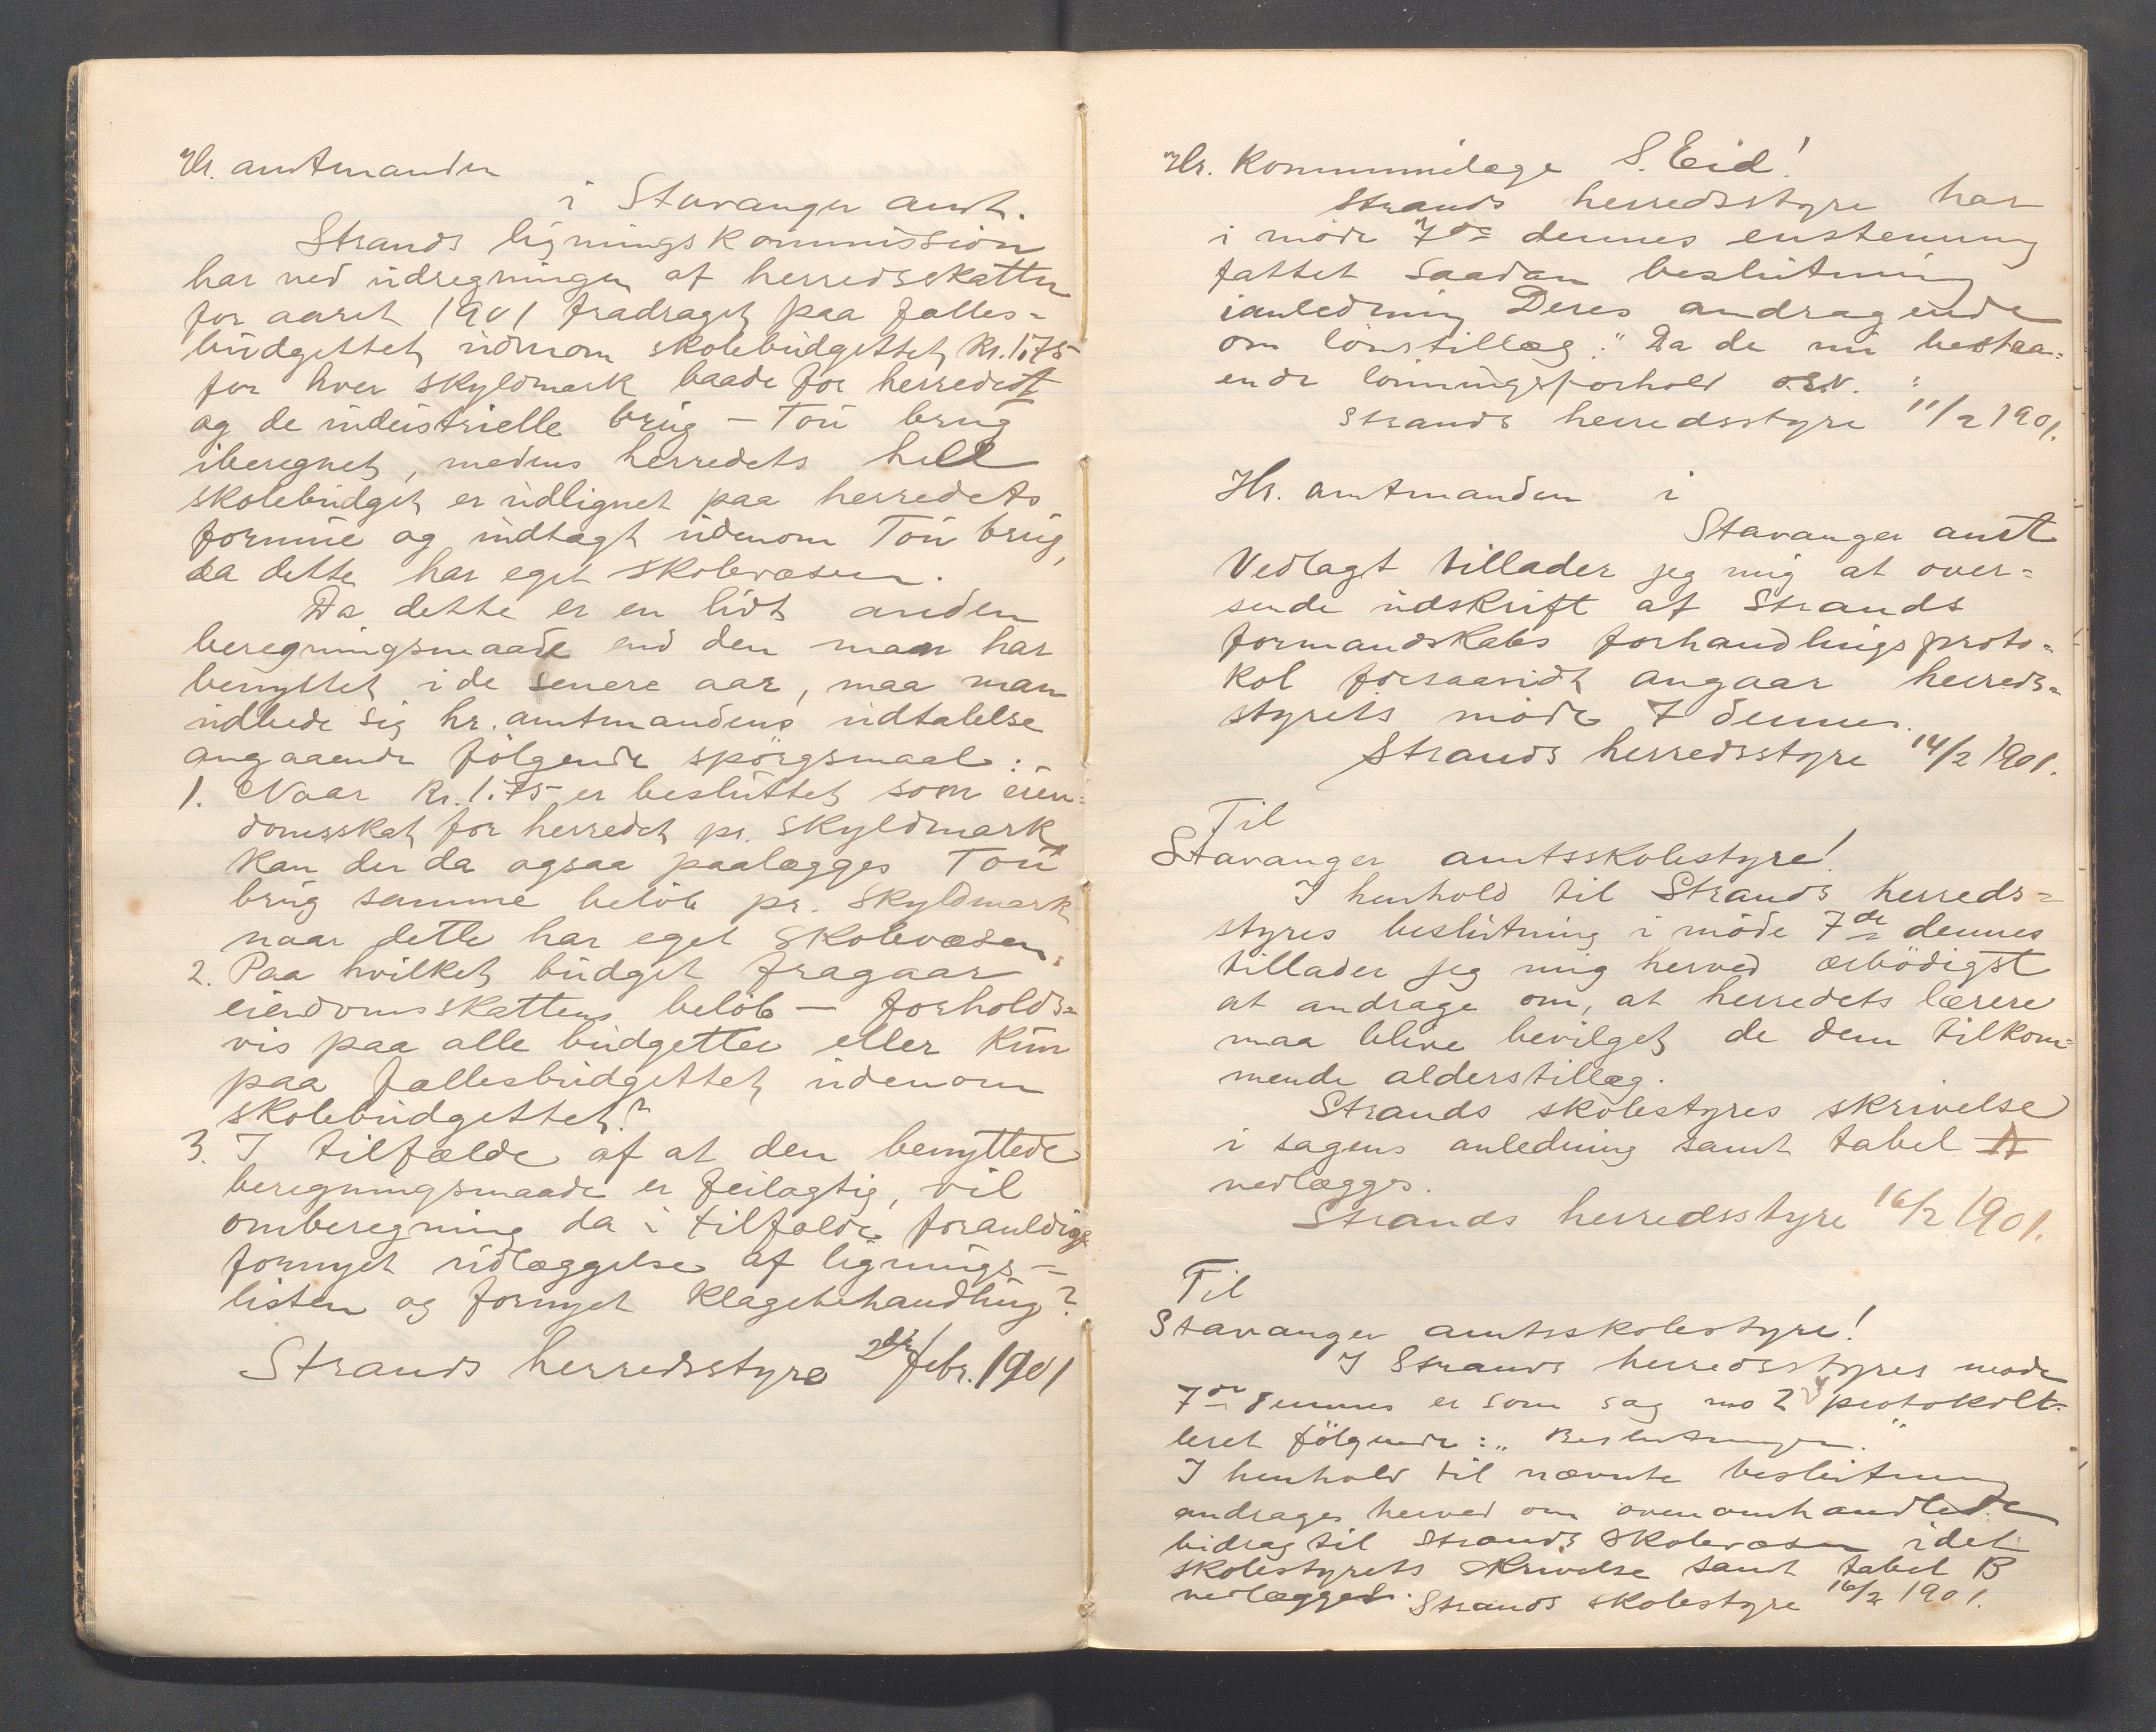 Hr. amtmanden
i Stavanger amt.
Strands ligningskommission
har ved udregningen af herredsskatten
for aaret 1901 fradraget paa fælles=
budgettet udenom skolebudgettet kr. 1.75
for hver skyldmark baade for herredet
og de industrielle brug – Tou brug
iberegnet, medens herredets hele
skolebudget er udlignet paa herredets
formue og indtægt udenom Tou brug,
da dette har eget skolevæsen.
Da dette er en lidt anden
beregningsmaade end den man har
benyttet i de senere aar, maa man
udbede sig hr. amtmandens udtalelse
angaaende følgende spörgsmaal:
1. Naar kr. 1.75 er besluttet som eien=
domsskat for herredet pr. skyldmark
kan der da ogsaa paalægges Tou
brug samme belöb pr. skyldmark
naar dette har eget skolevæsen?
2. Paa hvilket budget fragaar
eiendomsskattens belöb – forholds=
vis paa alle budgetter eller kun
paa fællesbudgettet udenom
skolebudgettet?
3. I tilfælde af at den benyttede
beregningsmaade er feilagtig, vil
omberegning da i tilfælde foranledige
fornyet udlæggelse af lignings=
listen og fornyet klagebehandling?
Strands herredsstyre febr. 1901
Hr. Kommunelæge S. Eid!
Strands herredsstyre har
i möde 7de dennes enstemmig
fattet saadan beslutning
ianledning Deres andragende
om lönstillæg: "Da de nu bestaa=
ende lönningsforhold o.s.v. "
Strands herredsstyre 11/2 1901.
Hr. amtmanden i
Stavanger amt
Vedlagt tillader jeg mig at over=
sende udskrift af Strands
formandskabs forhandlingsproto=
kol forsaavidt angaar herreds=
styrets möde 7 dennes.
Strands herredsstyre 14/2 1901.
Til
Stavanger amtsskolestyre!
I henhold til Strands herreds=
styres beslutning i möde 7de dennes
tillader jeg mig herved ærbödigst
at andrage om, at herredets lærere
maa blive bevilget de dem tilkom=
mende alderstillæg.
Strands skolestyres skrivelse
i sagens anledning samt tabel A
vedlægges.
Strands herredsstyre 16/2 1901.
Til
Stavanger amtsskolestyre!
I Strands herredsstyres möde
7de dennes er som sag no 2 protokol=
leret fölgende: „Beslutningen."
I henhold til nævnte beslutning
andrages herved om ovenomhandlede
bidrag til Strands skolevæsen idet
skolestyrets skrivelse samt tabel B
vedlægges. Strands skolestyre 16/2 1901.